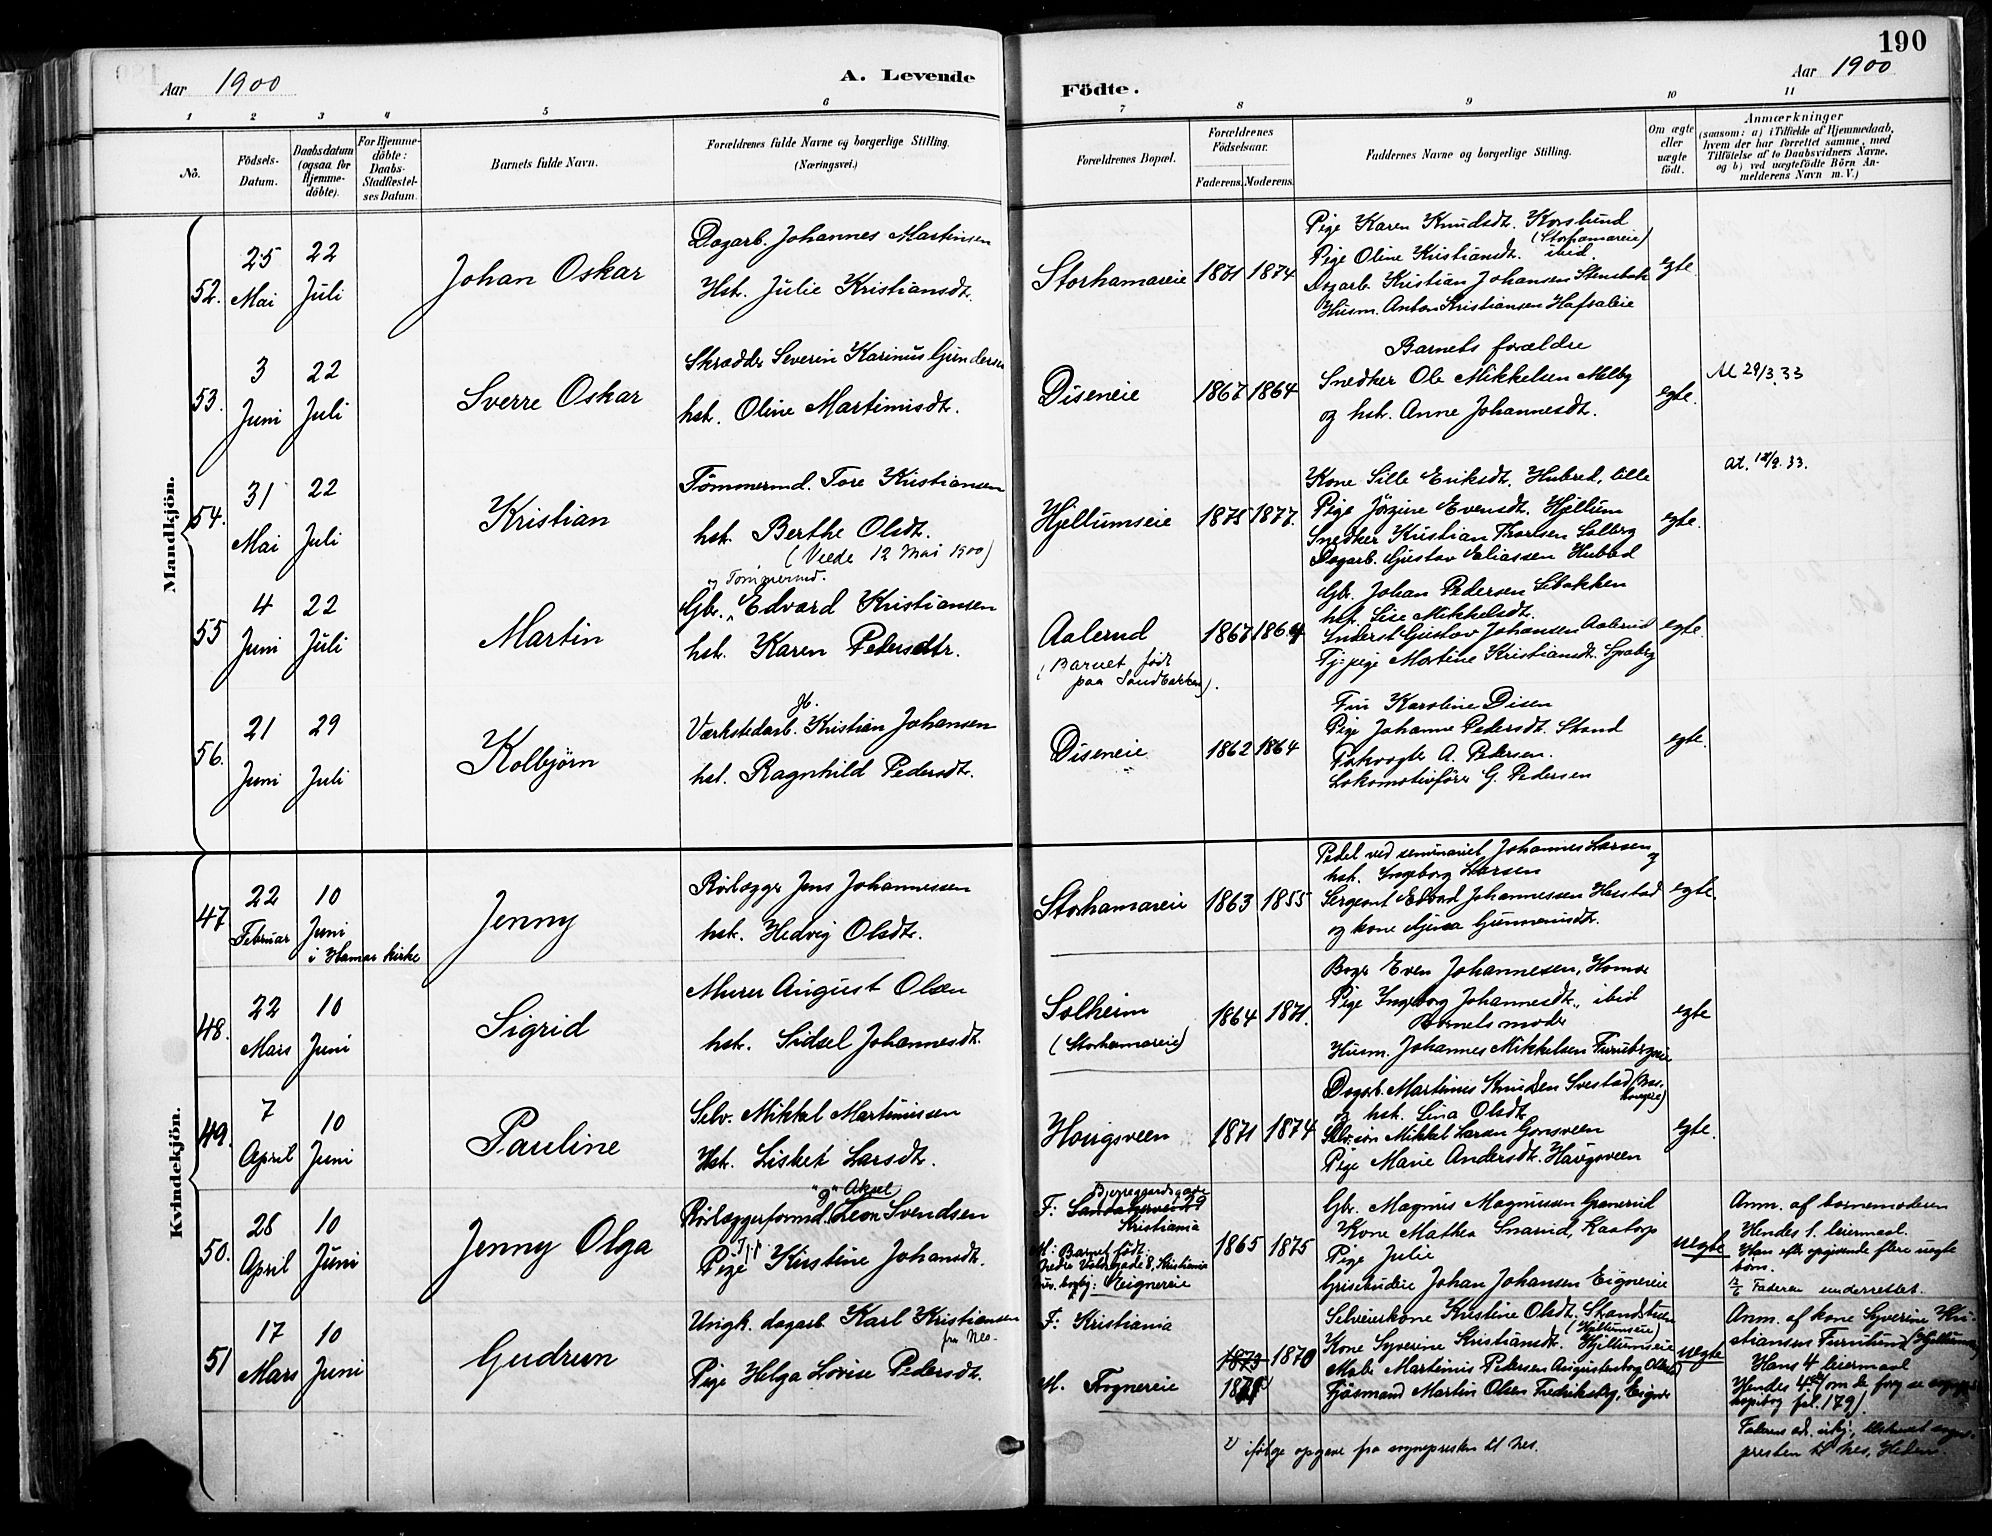 190
Aar 1900
A. Levende
Födte.
Aar 1900
1 2 3 4 5 6 7 8 9 10 11
No.
Födsels-
Datum.
Daabsdatum
(ogsaa for
Hjemme-
döbte).
For Hjemme-
döbte:
Daabs-
Stadfæstel-
ses Datum.
Barnets fulde Navn.
Forældrenes fulde Navne og borgerlige Stilling.
(Næringsvei.)
Forældrenes Bopæl.
Forældrenes
Födselsaar.
Faderens. Moderens.
Faddernes Navne og borgerlige Stilling.
Om ægte
eller
uægte
født.
Anmærkninger
(saasom: a) i Tilfælde af Hjemmedaab,
hvem der har forrettet samme, med
Tilföielse af to Daabsvidners Navne,
og b) ved uægtefödte Börn An-
melderens Navn m. V.)
Mandkjön.
52.
25
Mai
22
Juli
Johan Oskar
Dagarb. Johannes Martinsen
Hst. Julie Kristiansdt.
Storhamareie
1871 1874
Pige Karen Knudsdt. Korslund
(Storhamareie)
Pige Oline Kristiansdt. ibid.
Dagarb. Kristian Johansen Stensbak
Husm. Anton Kristiansen Hafsaleie
egte.
53.
3
Juni
22
Juli
Sverre Oskar
Skrædder Severin Karinus Gundersen
hst. Oline Martinusdt.
Diseneie
1867 1864
Barnets forældre
Snedker Ole Mikkelsen Melby
og hst. Anne Johannesdt.
egte.
At 29/3.33
54.
31
Mai
22
Juli
Kristian
Tömmermd. Tore Kristiansen
hst. Berthe Olsdt.
(Viede 12 Mai 1900)
Hjellumseie
1875 1877.
Kone Sille Eriksdt. Hubred, lille
Pige Jörgine Evensdt. Hjellum
Snedker Kristian Thorsen Solberg
Dagarb. Gustav Eliassen Hubred
egte.
at. 18/9.33.
55
4
Juni
22
Juli
Martin
og Tömmermd.
Gbr. Edvard Kristiansen
hst. Karen Pedersdtr.
Aalerud
(Barnet født
paa Sandbakken).
1867 1864
Gbr. Johan Pedersen Sebakken
hst. Lise Mikkelsdt.
Inderst Gustav Johansen Aalerud
Tj: pige Martine Kristiansdt. Spaberg
egte.
56.
21
Juni
29
Juli
Kolbjörn
Værkstedarb. Kristian Johansen
hst. Ragnhild Pedersdt.
Diseneie
1862 1864
Fru Karoline Disen
Pige Johanne Pedersdt. Strand
A. Petersen.
Lokomotivförer G. Pedersen
egte.
Kvindekjön.
47
22
Februar
10
Juni
i Hamar kirke
Jenny
Rörlægger Jens Johannessen
hst. Hedvig Olsdt.
Storhamareie
1863 1855
Pedel ved seminariet Johannes Larsen og
hst. Ingeborg Larsen
Sergeant Edvard Johannessen Harstad
og kone Ajusa Gunnerusdt.
egte.
48.
22
Mars
10
Juni
Sigrid
Murer August Olsen
hst. Sidsel Johannesdt.
Solheim
(Storhamareie)
1864 1871.
Bager Even Johannesen, Hamar
Pige Ingeborg Johannesdt., ibid
Barnets moder
Husm. Johannes Mikkelsen Furubergeie
egte
49.
7
April
10
Juni
Pauline
Selv. Mikkel Martinussen
Hst. Lisbet Larsdt.
Hougsveen
1871 1874
Dagarb. Martinus Knudsen Svestad
og hst. Lina Olsdt.
Selv.sön Mikkel Larsen Gonsveen
Pige Marie Andersdt. Haugsveen
egte.
50.
28
April
10
Juni
Jenny Olga
"g" Aksel
Rörlæggerformd. Leon Svendsen
Pige Kirstine Johansdt.
Bjerregaardsgade
F: 29
Kristiania
M: Barnet født:
8, Kristiania
Eignereie
1865 1875
Gbr. Magnus Magnussen Granerud
Kone Mathea Snarud, Kaatorp
Pige Julie
Johan Johansen Eignereie
uegte
Anm. af barnemoderen
Hendes 1. leiermaal.
Han efter opgivende flere uegte
börn.
Faderen underrettet.
51
17
Mars
10
Juni
Gudrun
Ungk. dagarb. Karl Kristiansen
fra Nes.
Pige Helga Lovise Pedersdt.
F: Kristiania
M. Fognereie
1873 1870
Selveierkone Kristine Olsdt. Strandstuen
(Hjellumseie)
Kone Syverine Kristiansdt. Hjellumseie
Maler Martinus Pedersen Augustenborg
Fjösmand Martin Olsen Fredriksberg, Eigner
uegte
Anm. af kone Syverine Kri-
stiansen Furutun (Hjellumseie)
Hans 4 leiermaal
Hendes 4de (om de forr. se
fol. 179).
presten til Nes, Hedem.
1) ifölge opgave fra sognepresten til Nes.